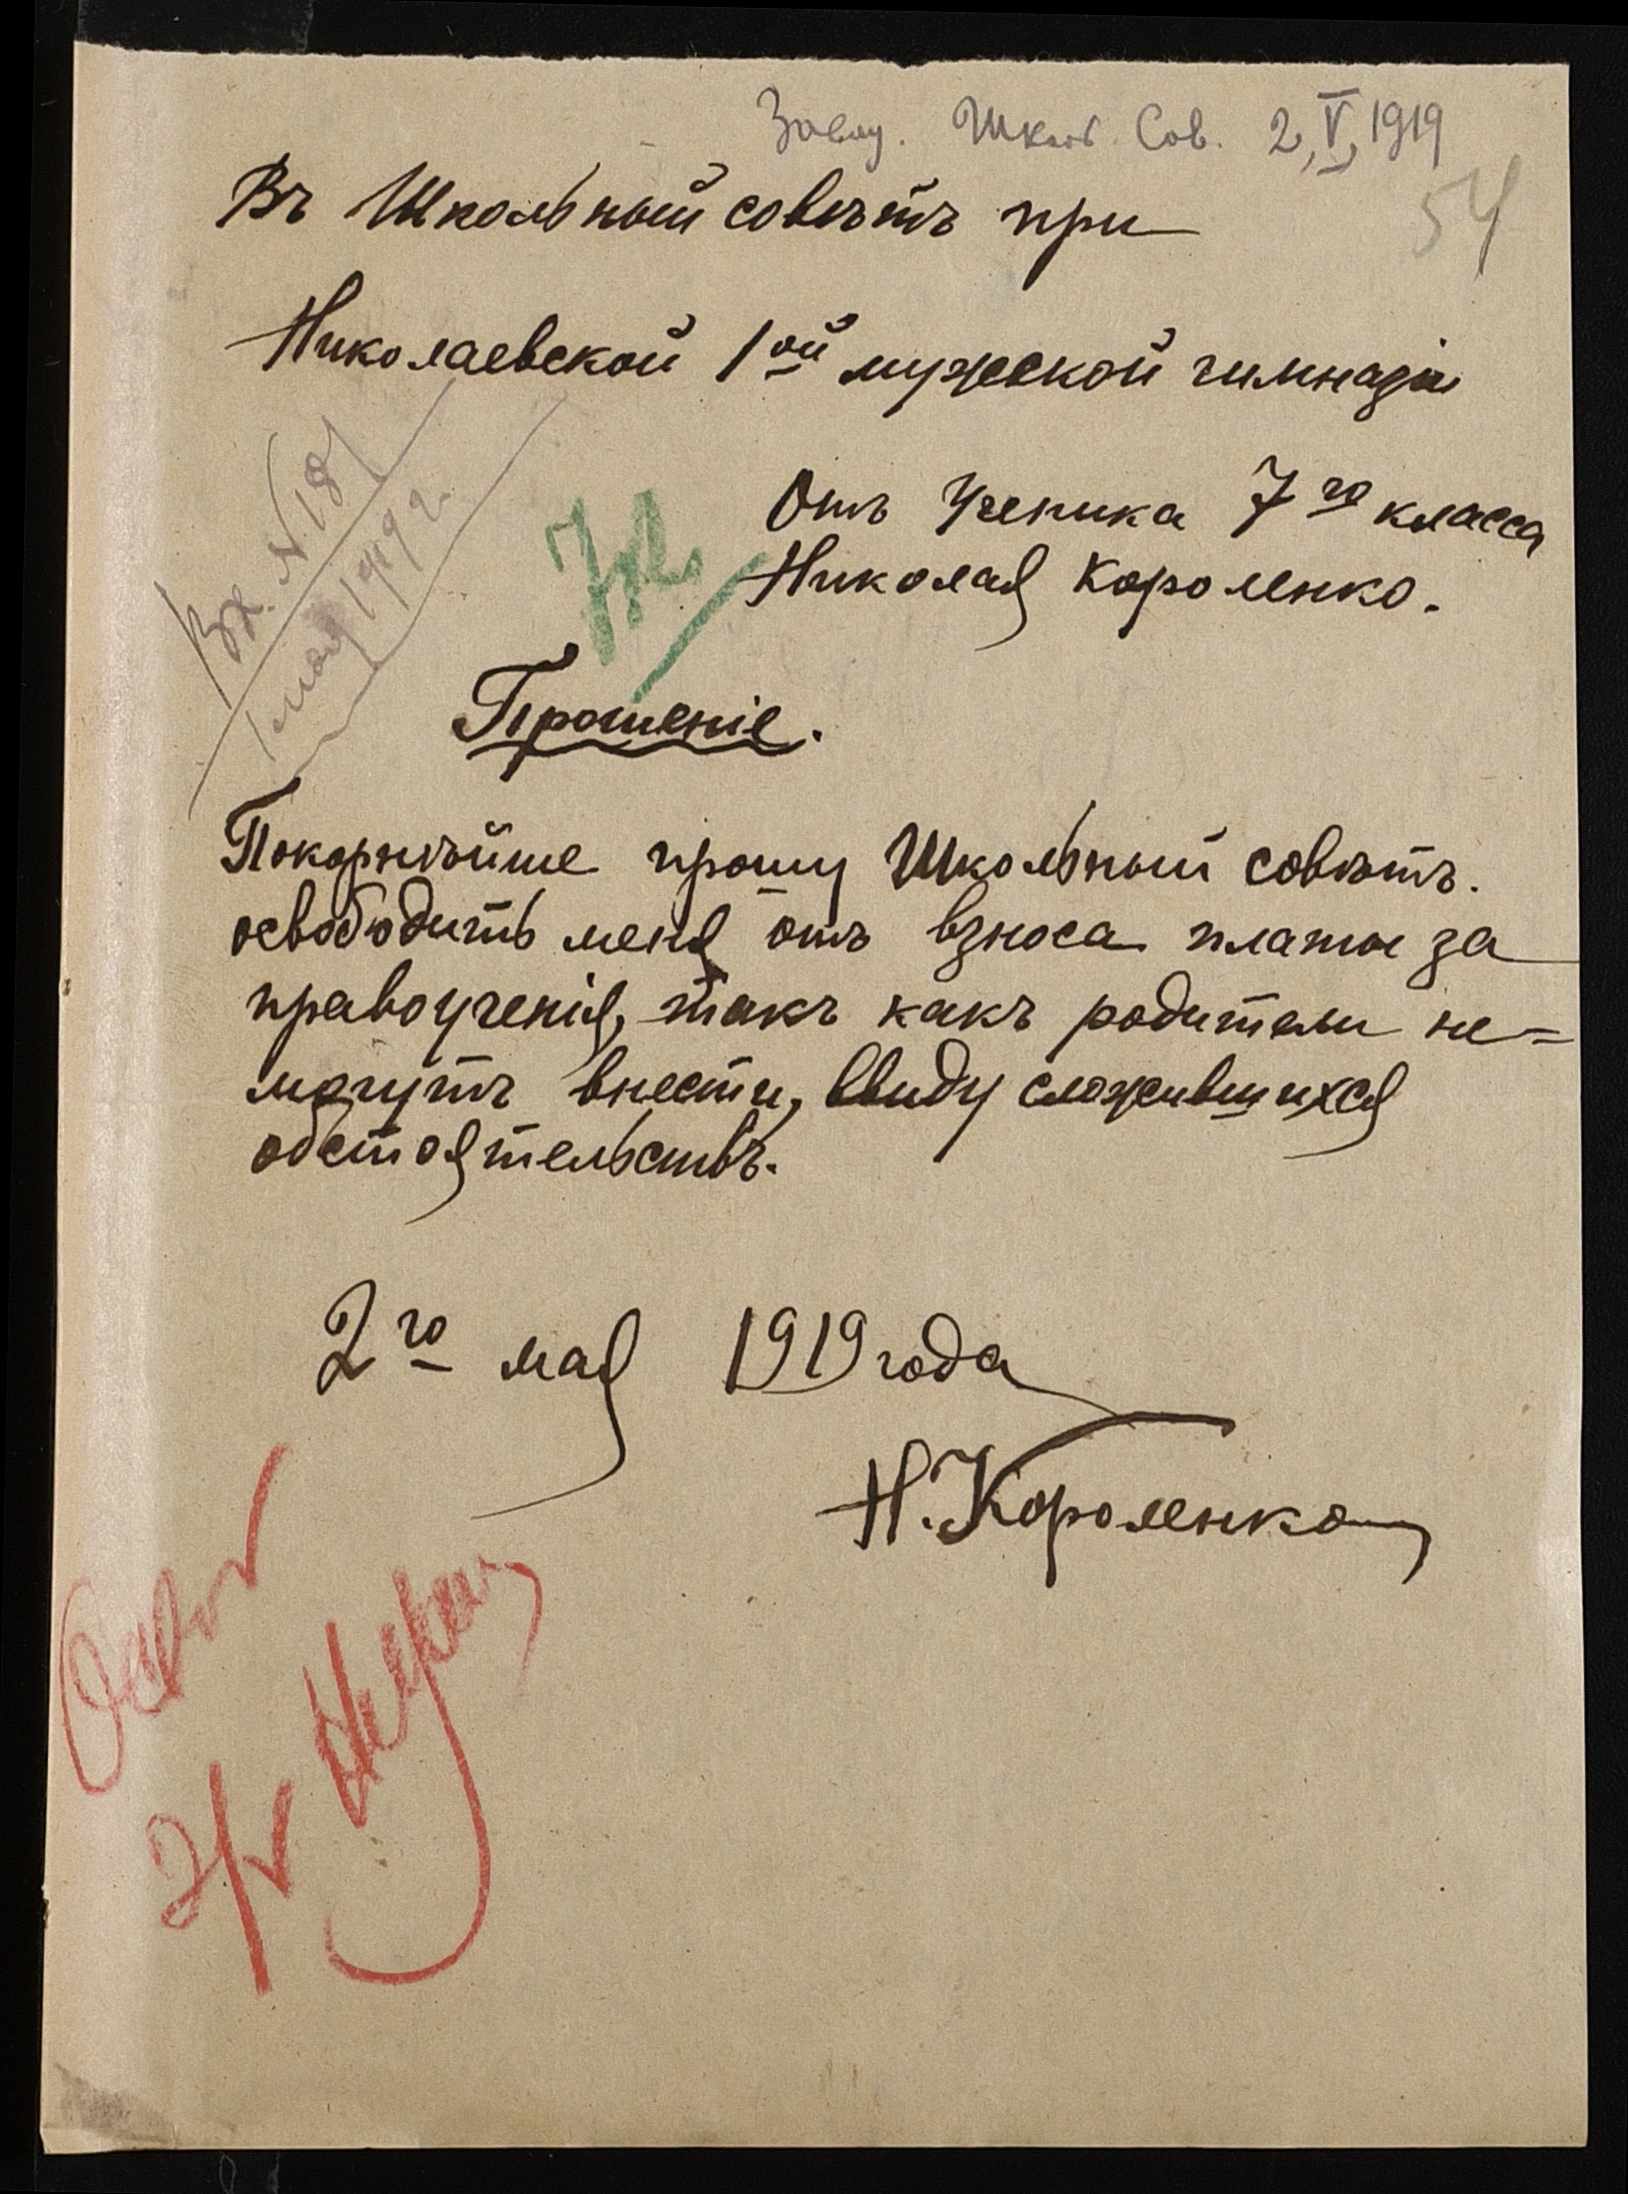 Школ. Сов. 2, V, 1919
54
Въ Школьный совѣтъ при
Николаевской 1ой мужской гимназіи
Вх. № 181
1 мая 1919 г.
Отъ Ученика 7го класса
Николая Короленко.
Прошеніе.
Покорнѣйше прошу Школьный совѣтъ.
освободить меня отъ взноса платы за
правоученія, такъ какъ родители не=
могутъ внести, ввиду сложившихся
обстоятельствъ.
2го мая 1919 года
Н. Короленко